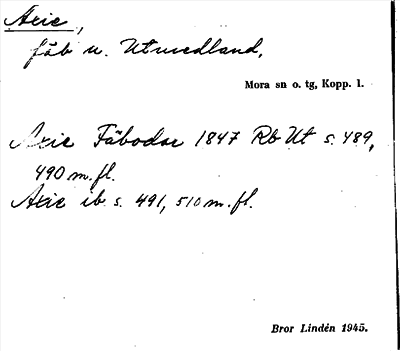 Axie,
fäb u. Utmedland,
Mora sn o. tg, Kopp. l.
Axie Fäbodar 1847 Rb Ut s. 489,
490 m.fl.
Axie ib. s. 491, 510 m.fl.
Bror Lindén 1945.